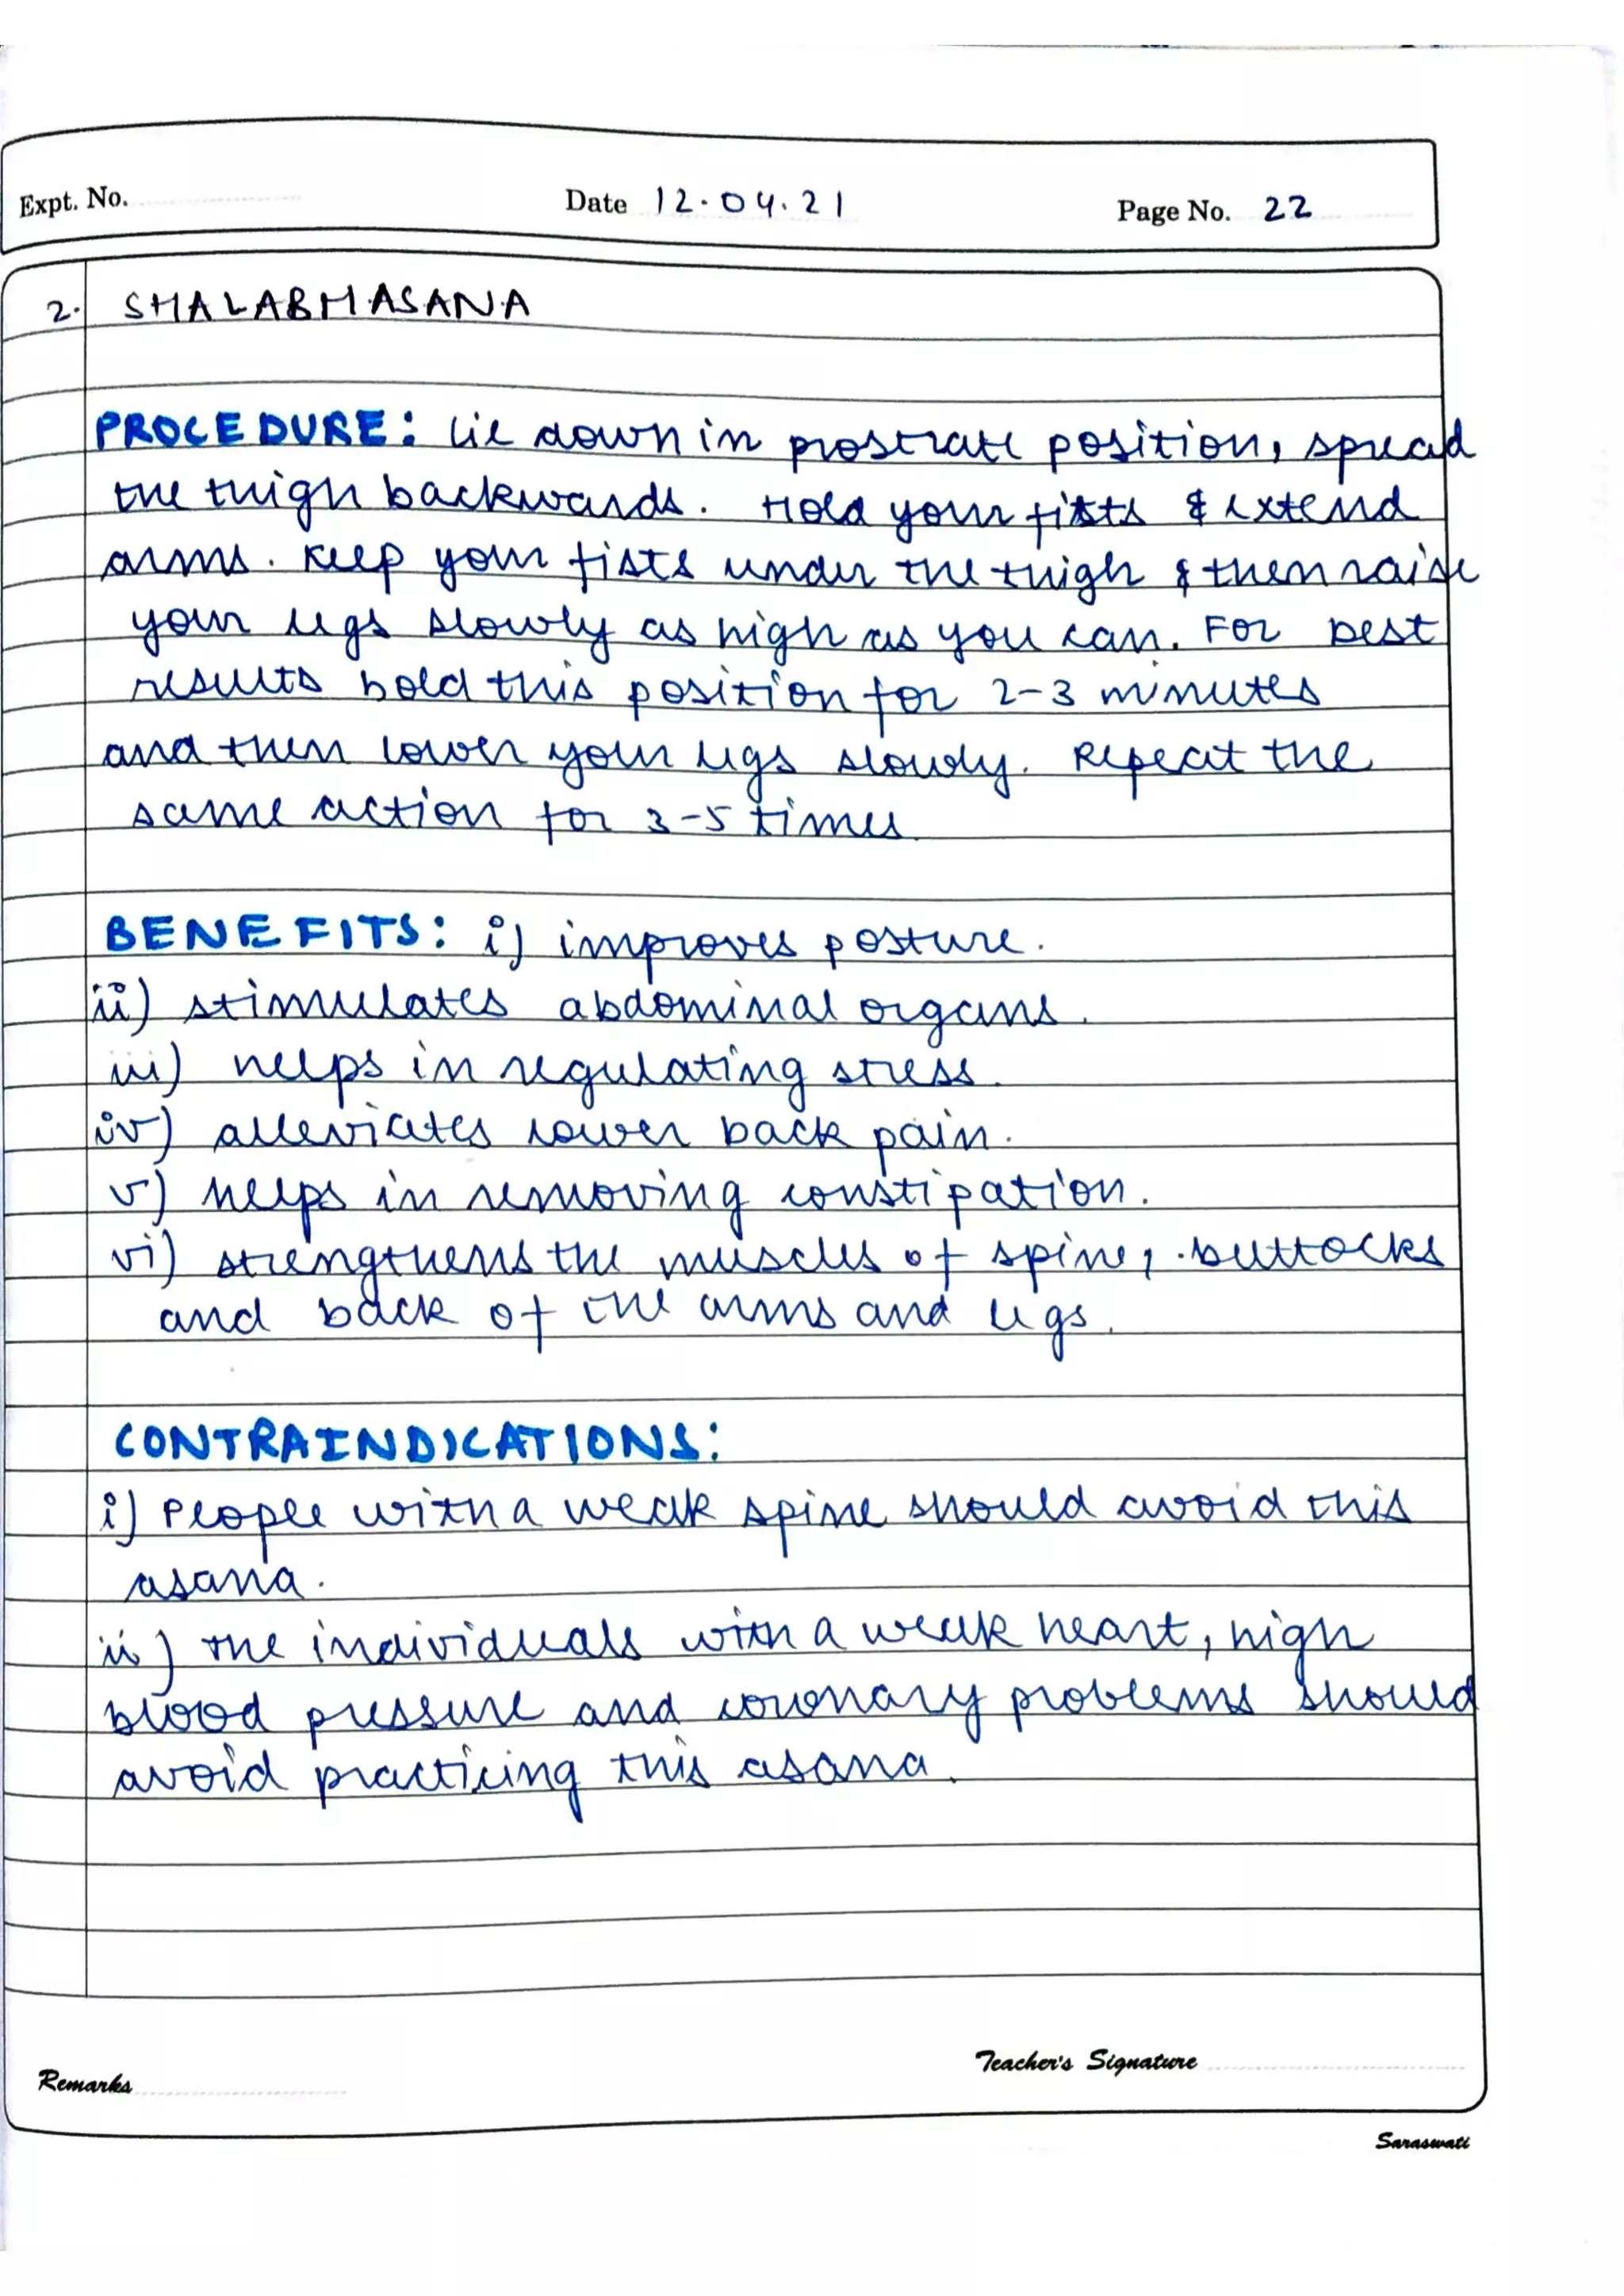 Expt. No. Date 12.04.21 Page No. 22
2. SHALABHASANA
PROCEDURE: Lie down in prostrate position, spread
the thigh backwards. Hold your fists & extend
arms. Keep your fists under the thigh & then raise
your legs slowly as high as you can. For best
results hold this position for 2-3 minutes
and then lower your legs slowly. Repeat the
same action for 3-5 times.
BENEFITS: i) improves posture.
ii) stimulates abdominal organs.
iii) helps in regulating stress.
iv) alleviates lower back pain.
v) helps in removing constipation.
vi) strengthens the muscles of spine, buttocks
and back of the arms and legs.
CONTRAINDICATIONS:
i) People with a weak spine should avoid this
asana.
ii) The individuals with a weak heart, high
blood pressure and coronary problems should
avoid practicing this asana.
Teacher's Signature
Remarks
Saraswati